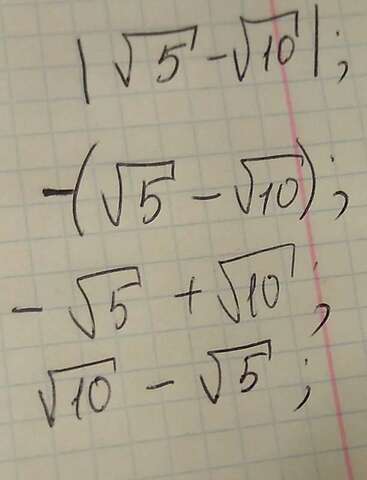 |√5 - √10|;
-(√5 - √10);
- √5 + √10;
√10 - √5;